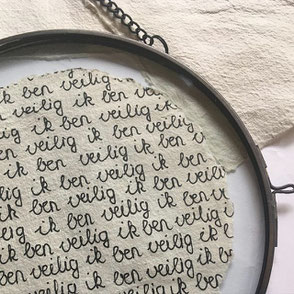 ik ben veilig
ik ben veilig ik ben
veilig ik ben veilig ik ben
ik ben veilig ik ben veilig
ik ben veilig ik ben veilig ik
ben veilig ik ben veilig ik ben
veilig ik ben veilig ik ben veilig
ik ben veilig ik ben veilig ik
ben veilig ik ben veilig ik ben
ik ben veilig ik ben veilig
ben veilig ik ben veilig